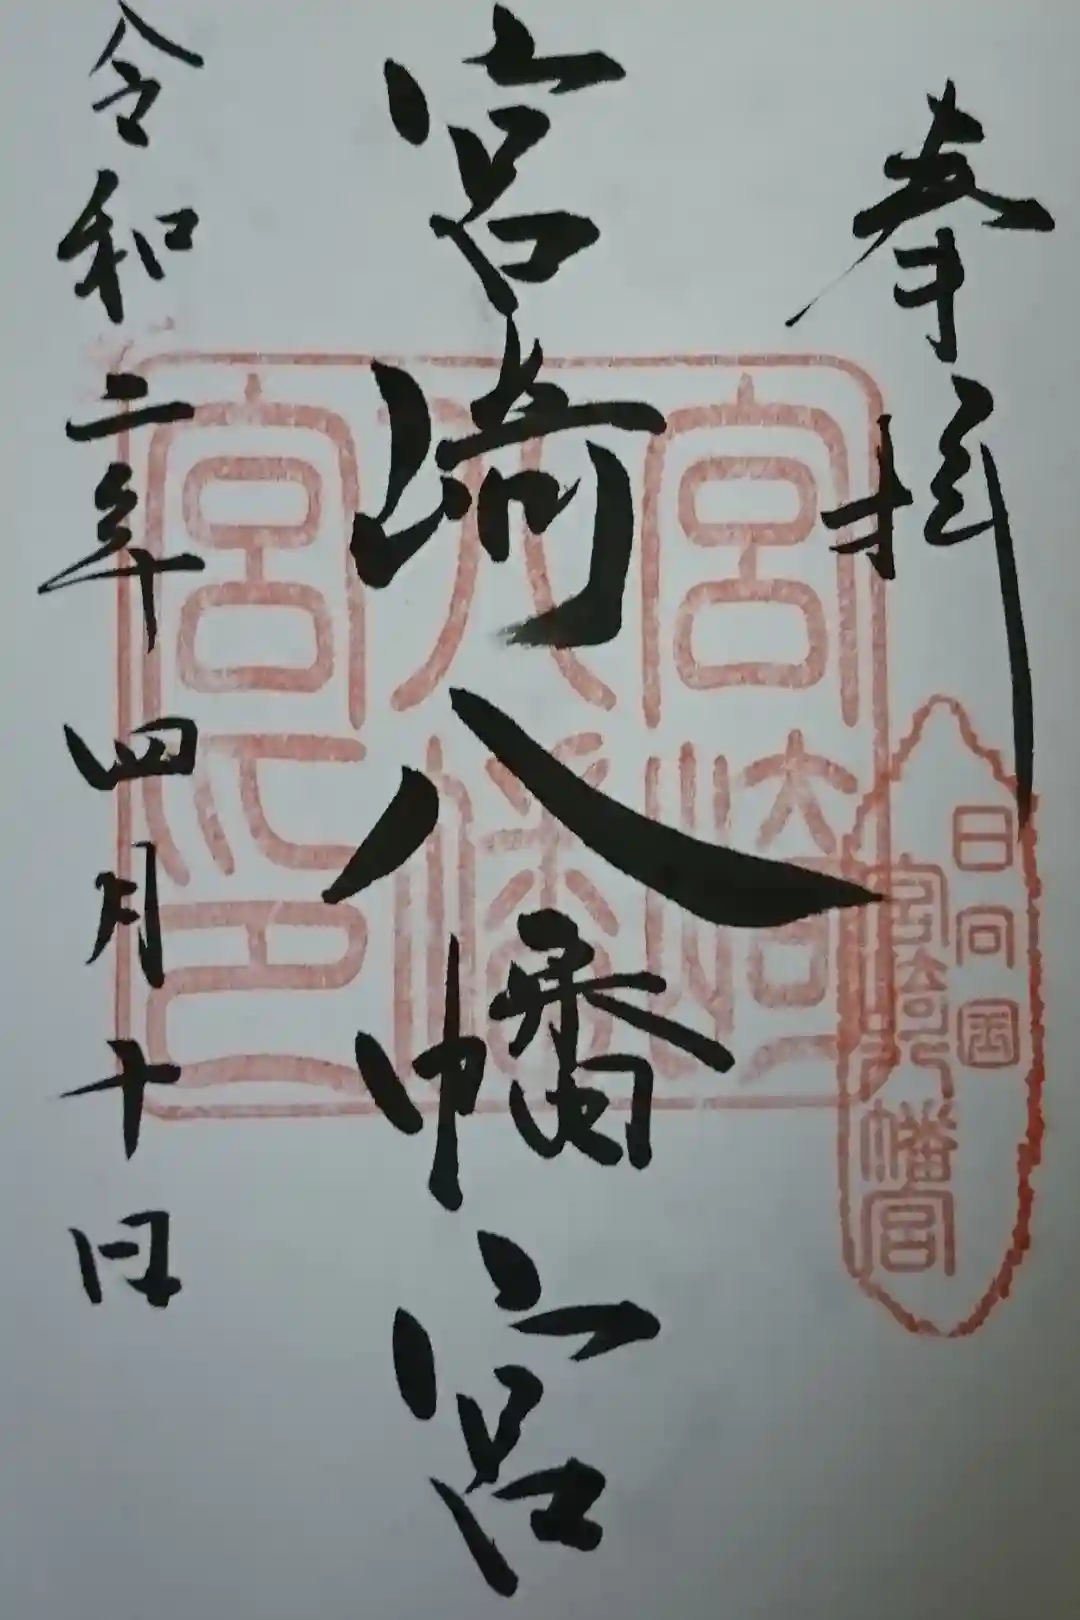 奉拝
日向国
宮崎八幡宮
宮崎八幡宮
宮崎
八幡
宮印
令和二年四月十日